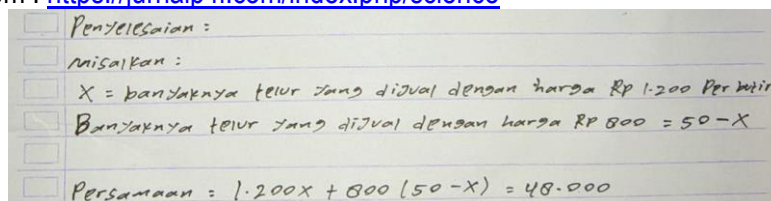 https://jurnalp4i.com/index.php/science
Penyelesaian :
misalkan :
X = banyaknya telur yang dijual dengan harga Rp 1.200 Per butir
Banyaknya telur yang dijual dengan harga Rp 800 = 50 - X
Persamaan : 1.200x + 800 (50 - X) = 48.000